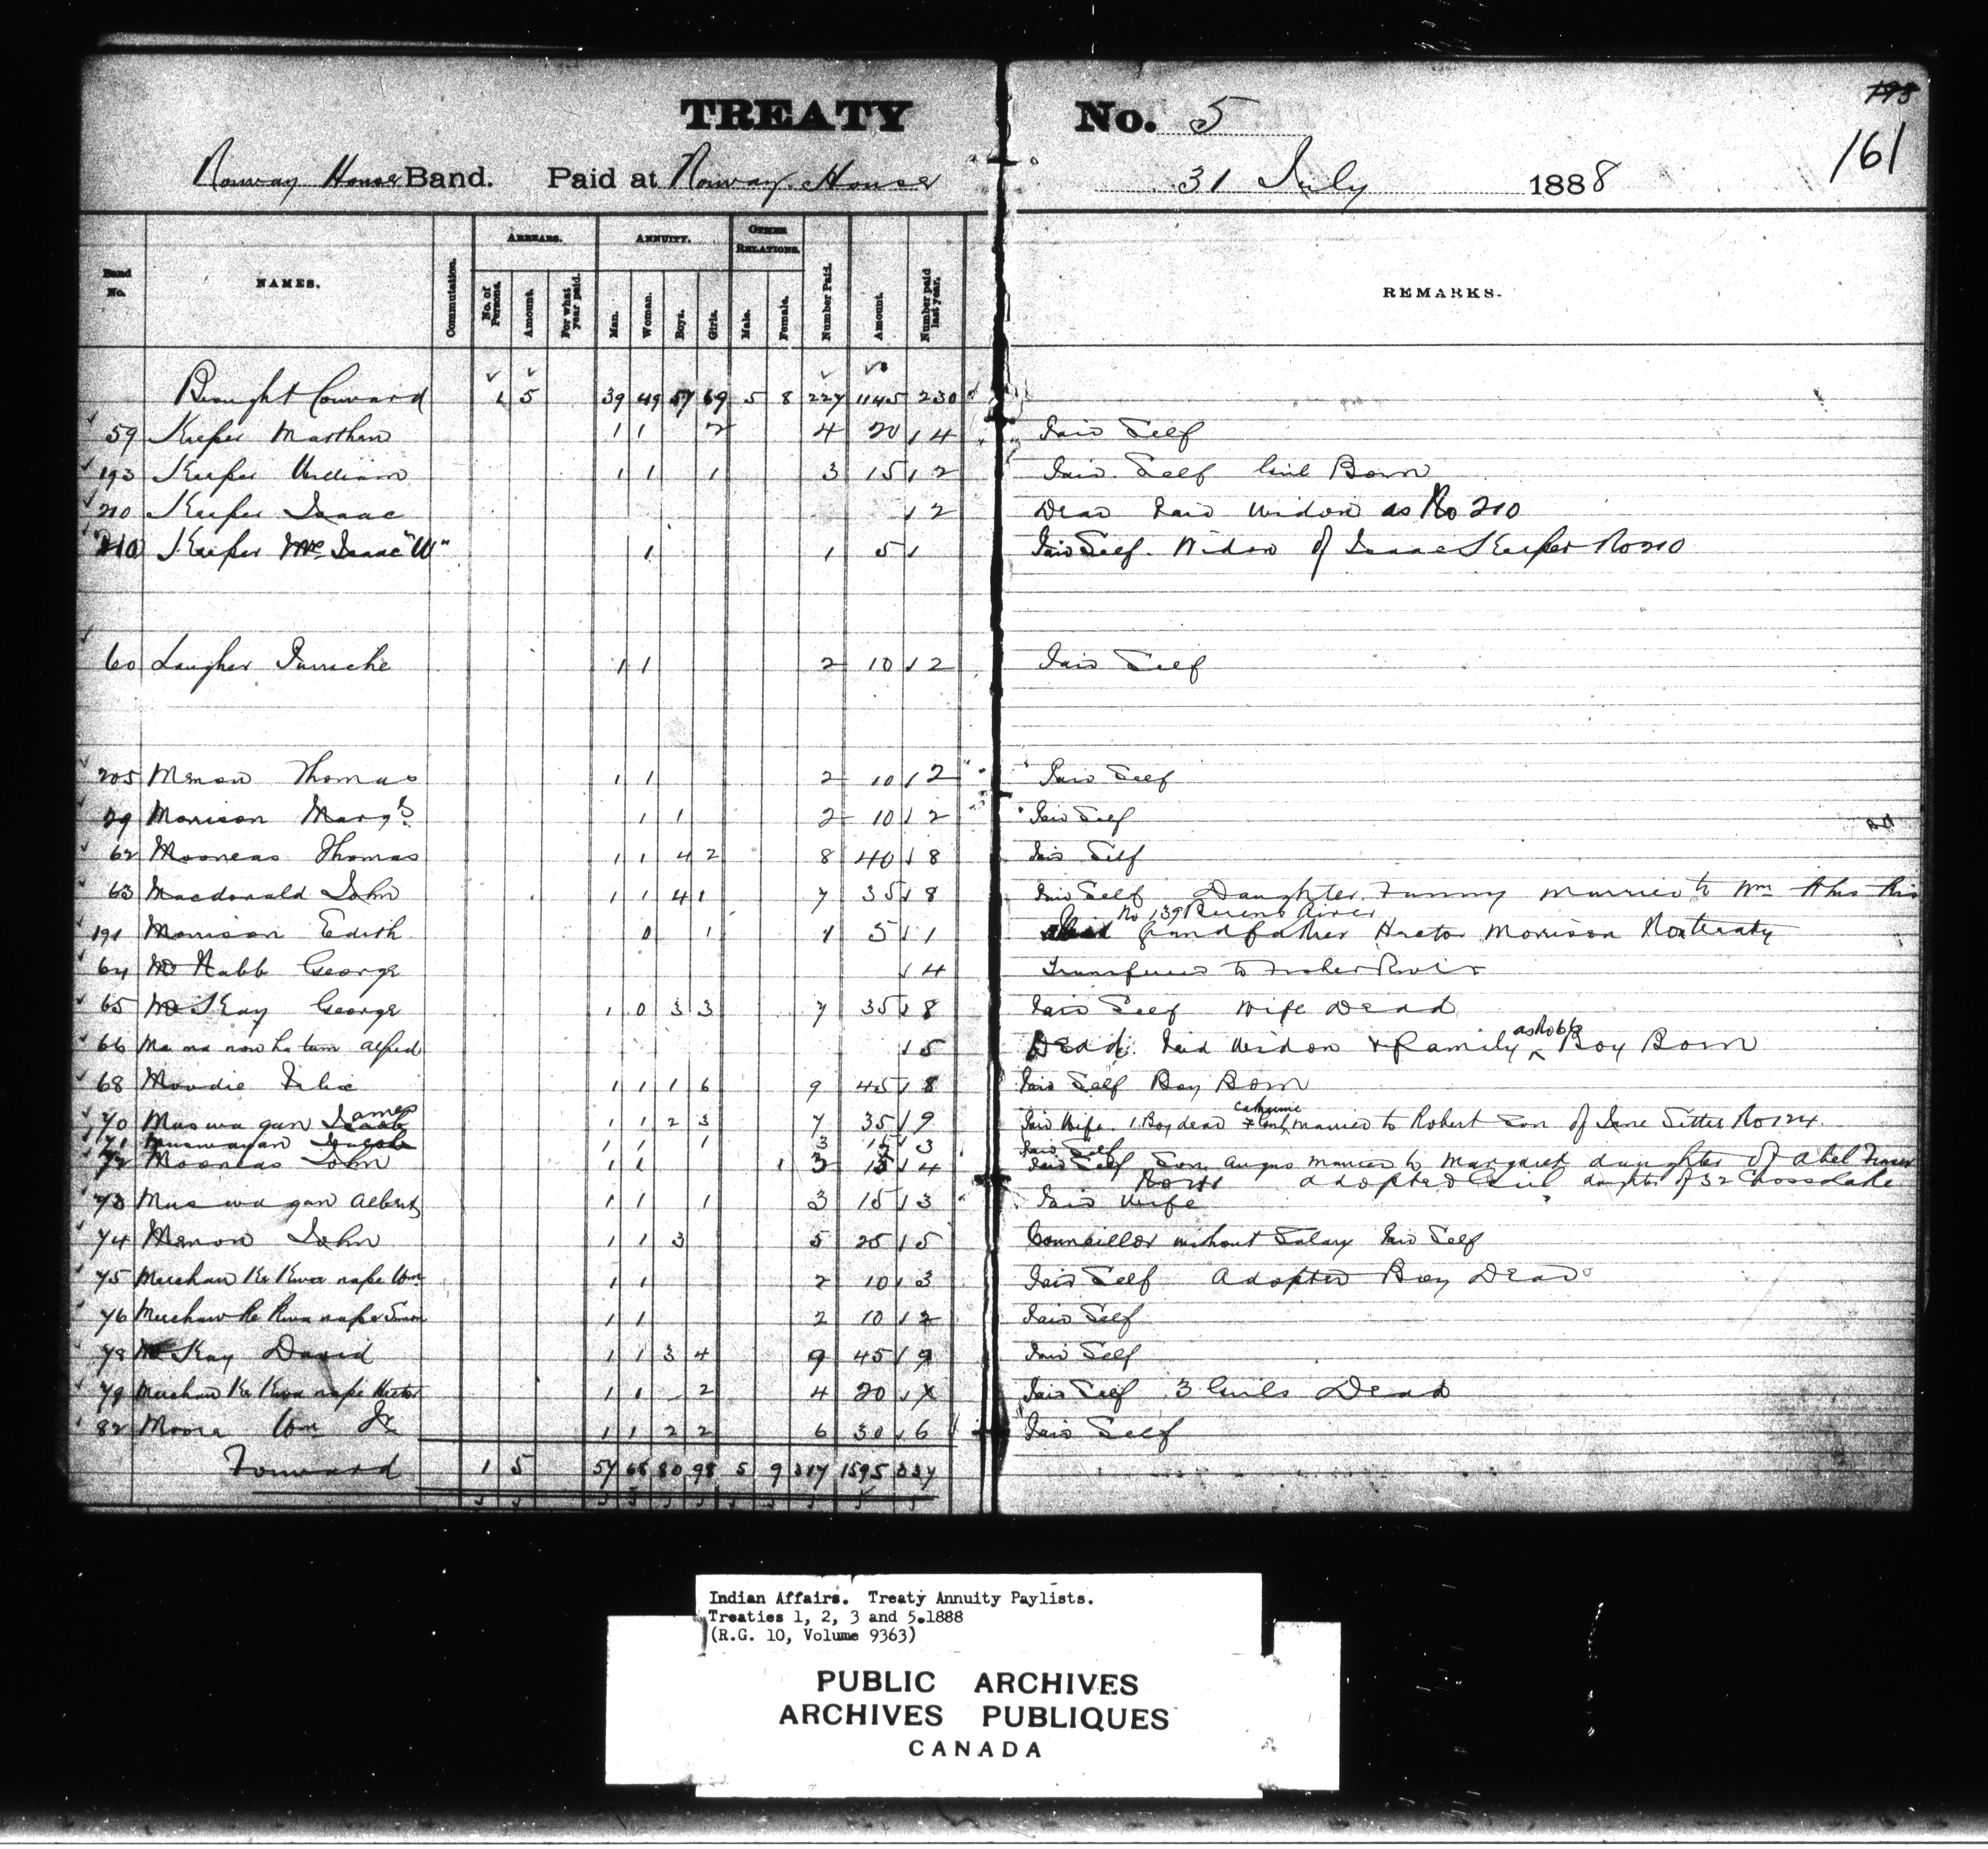 TREATY No. 5
193
161
Norway House Band. Paid at Norway House 31 July 1888
Band No. NAMES. Commutation. ARREARS. No. of Persons. Amount. For what year paid. ANNUITY. Man. Woman. Boys. Girls. OTHER RELATIONS. Male. Female. Number Paid. Amount. Number paid last year. REMARKS.
Brought Forward 1 5 39 49 57 69 5 8 227 1145 230
59 Keeper Matthew 1 1 2 4 20 4 Paid Self
193 Keeper William 1 1 1 3 15 2 Paid Self Girl Born
210 Keeper Isaac 2 Dead Paid Widow as No 210
210 Keeper Mrs Isaac "W" 1 1 5 Paid Self. Widow of Isaac Keeper No 210
60 Laugher 1 1 2 10 2 Paid Self
205 Menow Thomas 1 1 2 10 2 Paid Self
29 Morrison Margt 1 1 2 10 2 Paid Self
62 Mooneas Thomas 1 1 4 2 8 40 8 Paid Self
63 Macdonald John 1 1 4 1 7 35 8 Paid Self Daughter Fanny married to Wm
No 139 Berens River
191 Morrison Edith 0 1 1 5 1 Paid Grandfather Hector Morrison Non treaty
64 McNabb George 4 Transferred to Fisher River
65 McKay George 1 0 3 3 7 35 8 Paid Self Wife Dead
66 Ma ma now ha tum Alfred 5 Dead. Paid Widow & Family as No 66 Boy Born
68 Moodie 1 1 1 6 9 45 8 Paid Self Boy Born
70 Mus wa gun James 1 1 2 3 7 35 9 Paid Wife. 1 Boy dead Catherine married to Robert Son of Jane Sitter No 124
71 Muswagan Jacob 1 1 1 3 15 3 Paid Self
72 Mooneas John 1 1 1 3 15 4 Paid Self Son Angus married to Margaret daughter of Abel
adopted Girl daughter of 32 Cross Lake
73 Mus wa gan Albert 1 1 1 3 15 3 Paid Wife
74 Menow John 1 1 3 5 25 5 Councillor without Salary Paid Self
75 Meechaw Ke Kwa nape Wm 1 1 2 10 3 Paid Self Adopted Boy Dead
76 Meechaw Ke Kwa nape Simon 1 1 2 10 2 Paid Self
78 McKay David 1 1 3 4 9 45 9 Paid Self
79 Meechaw Ke Kwa nape Hector 1 1 2 4 20 Paid Self 3 Girls Dead
82 Moore Wm Jr 1 1 2 2 6 30 6 Paid Self
Forward 1 5 57 68 80 98 5 9 317 1595 337
Indian Affairs. Treaty Annuity Paylists.
Treaties 1, 2, 3 and 5.1888
(R.G. 10, Volume 9363)
PUBLIC ARCHIVES
ARCHIVES PUBLIQUES
CANADA